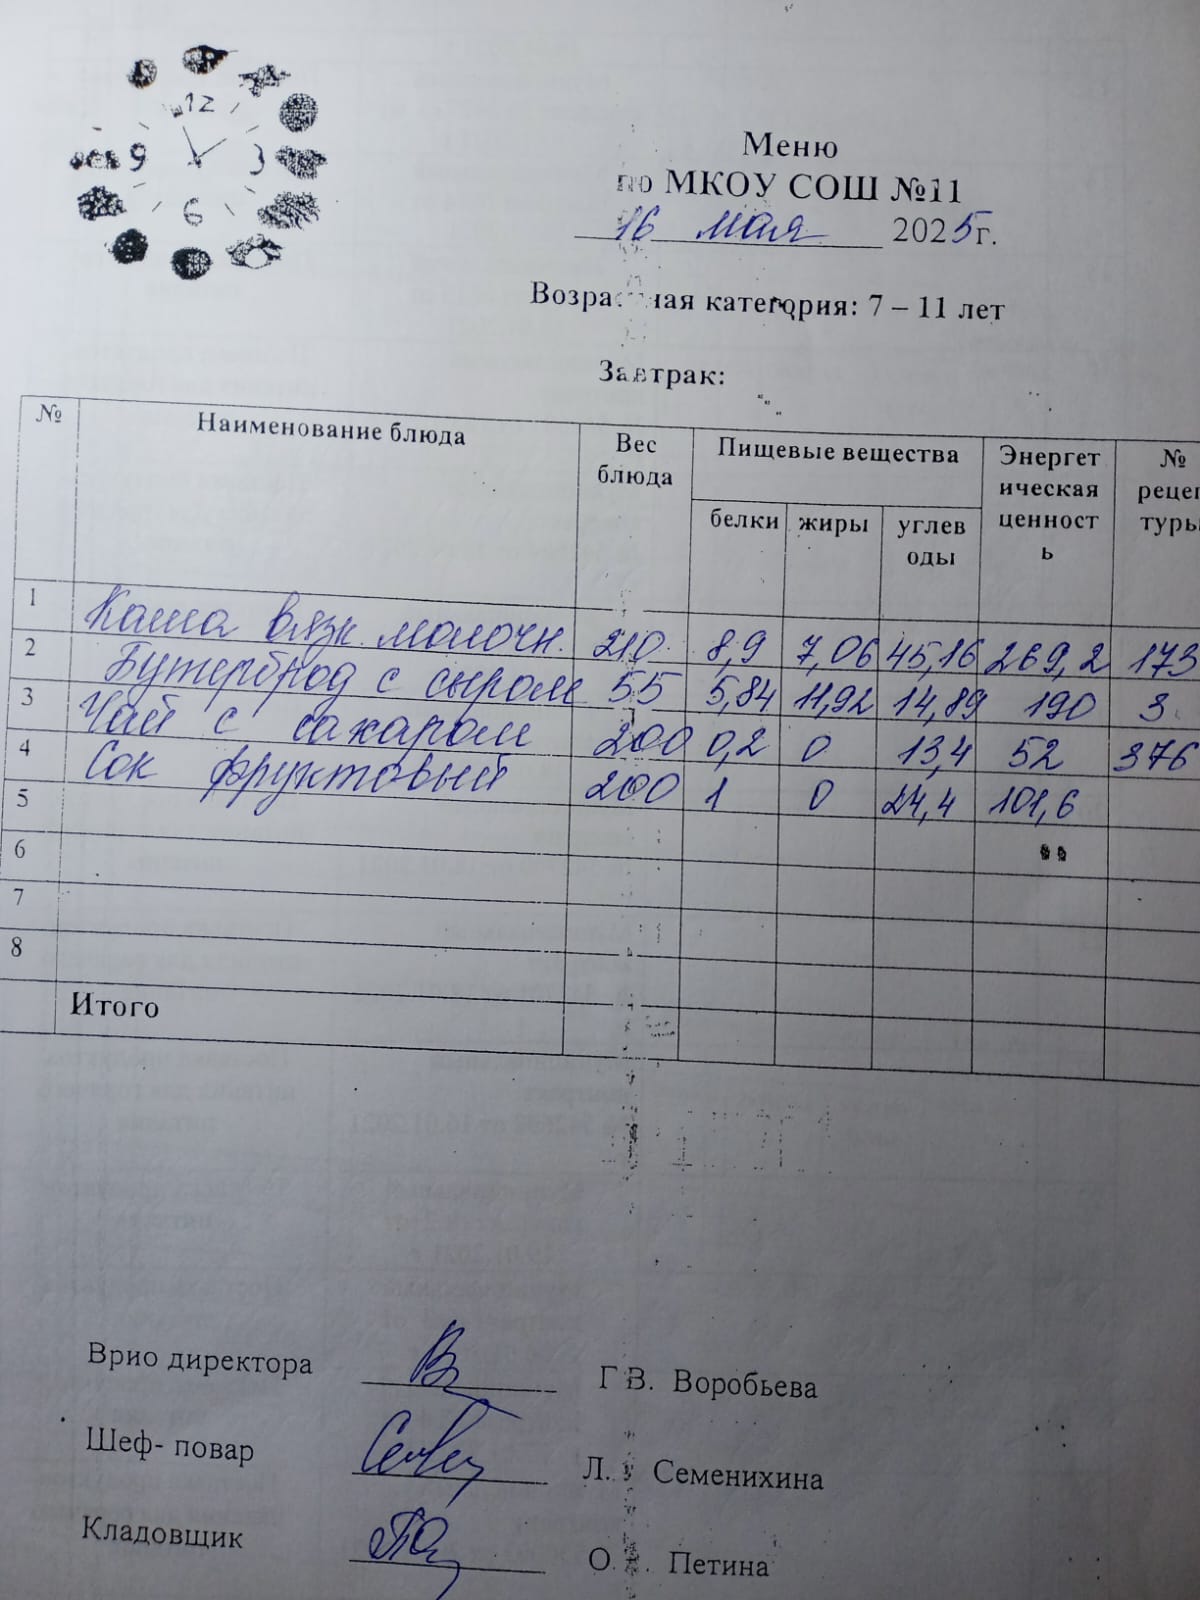 12
9 3
6
Меню
по МКОУ СОШ №11
16 мая 2025г.
Возрастная категория: 7 – 11 лет
Завтрак:
№ Наименование блюда Вес блюда Пищевые вещества Энергетическая ценность № рецептуры
белки жиры углеводы
1 Каша вязк. молочн. 210 8,9 7,06 45,16 269,2 173
2 Бутерброд с сыром 55 5,84 11,92 14,89 190 3
3 Чай с сахаром 200 0,2 0 13,4 52 376
4 Сок фруктовый 200 1 0 24,4 101,6
5
6
7
8
Итого
Врио директора Г.В. Воробьева
Шеф- повар Л. Семенихина
Кладовщик О. Петина